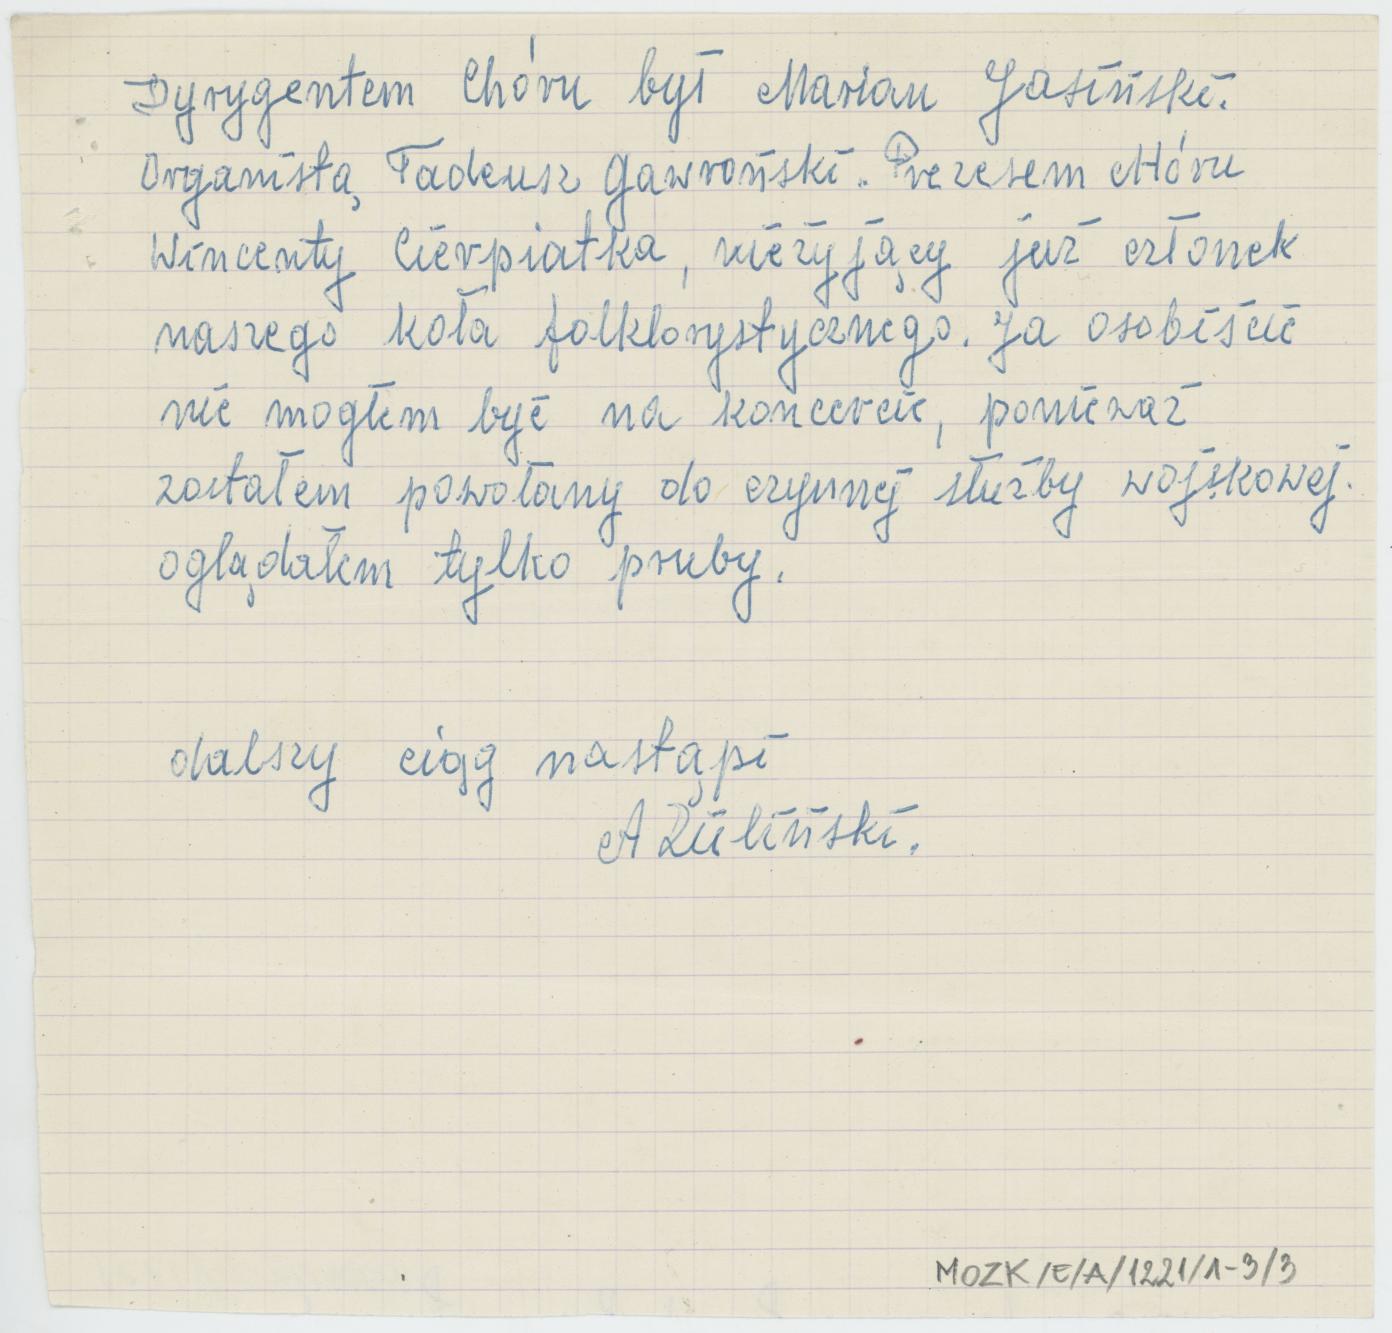 Dyrygentem Chóru był Marian Jasiński.
Organistą Tadeusz Gawroński. Prezesem Chóru
Wincenty Cierpiatka, nieżyjący już członek
naszego koła folklorystycznego. Ja osobiście
nie mogłem być na koncercie, ponieważ
zostałem powołany do czynnej służby wojskowej.
oglądałem tylko pruby.
dalszy ciąg nastąpi
A Zieliński.
MOZK/E/A/1221/1-3/3